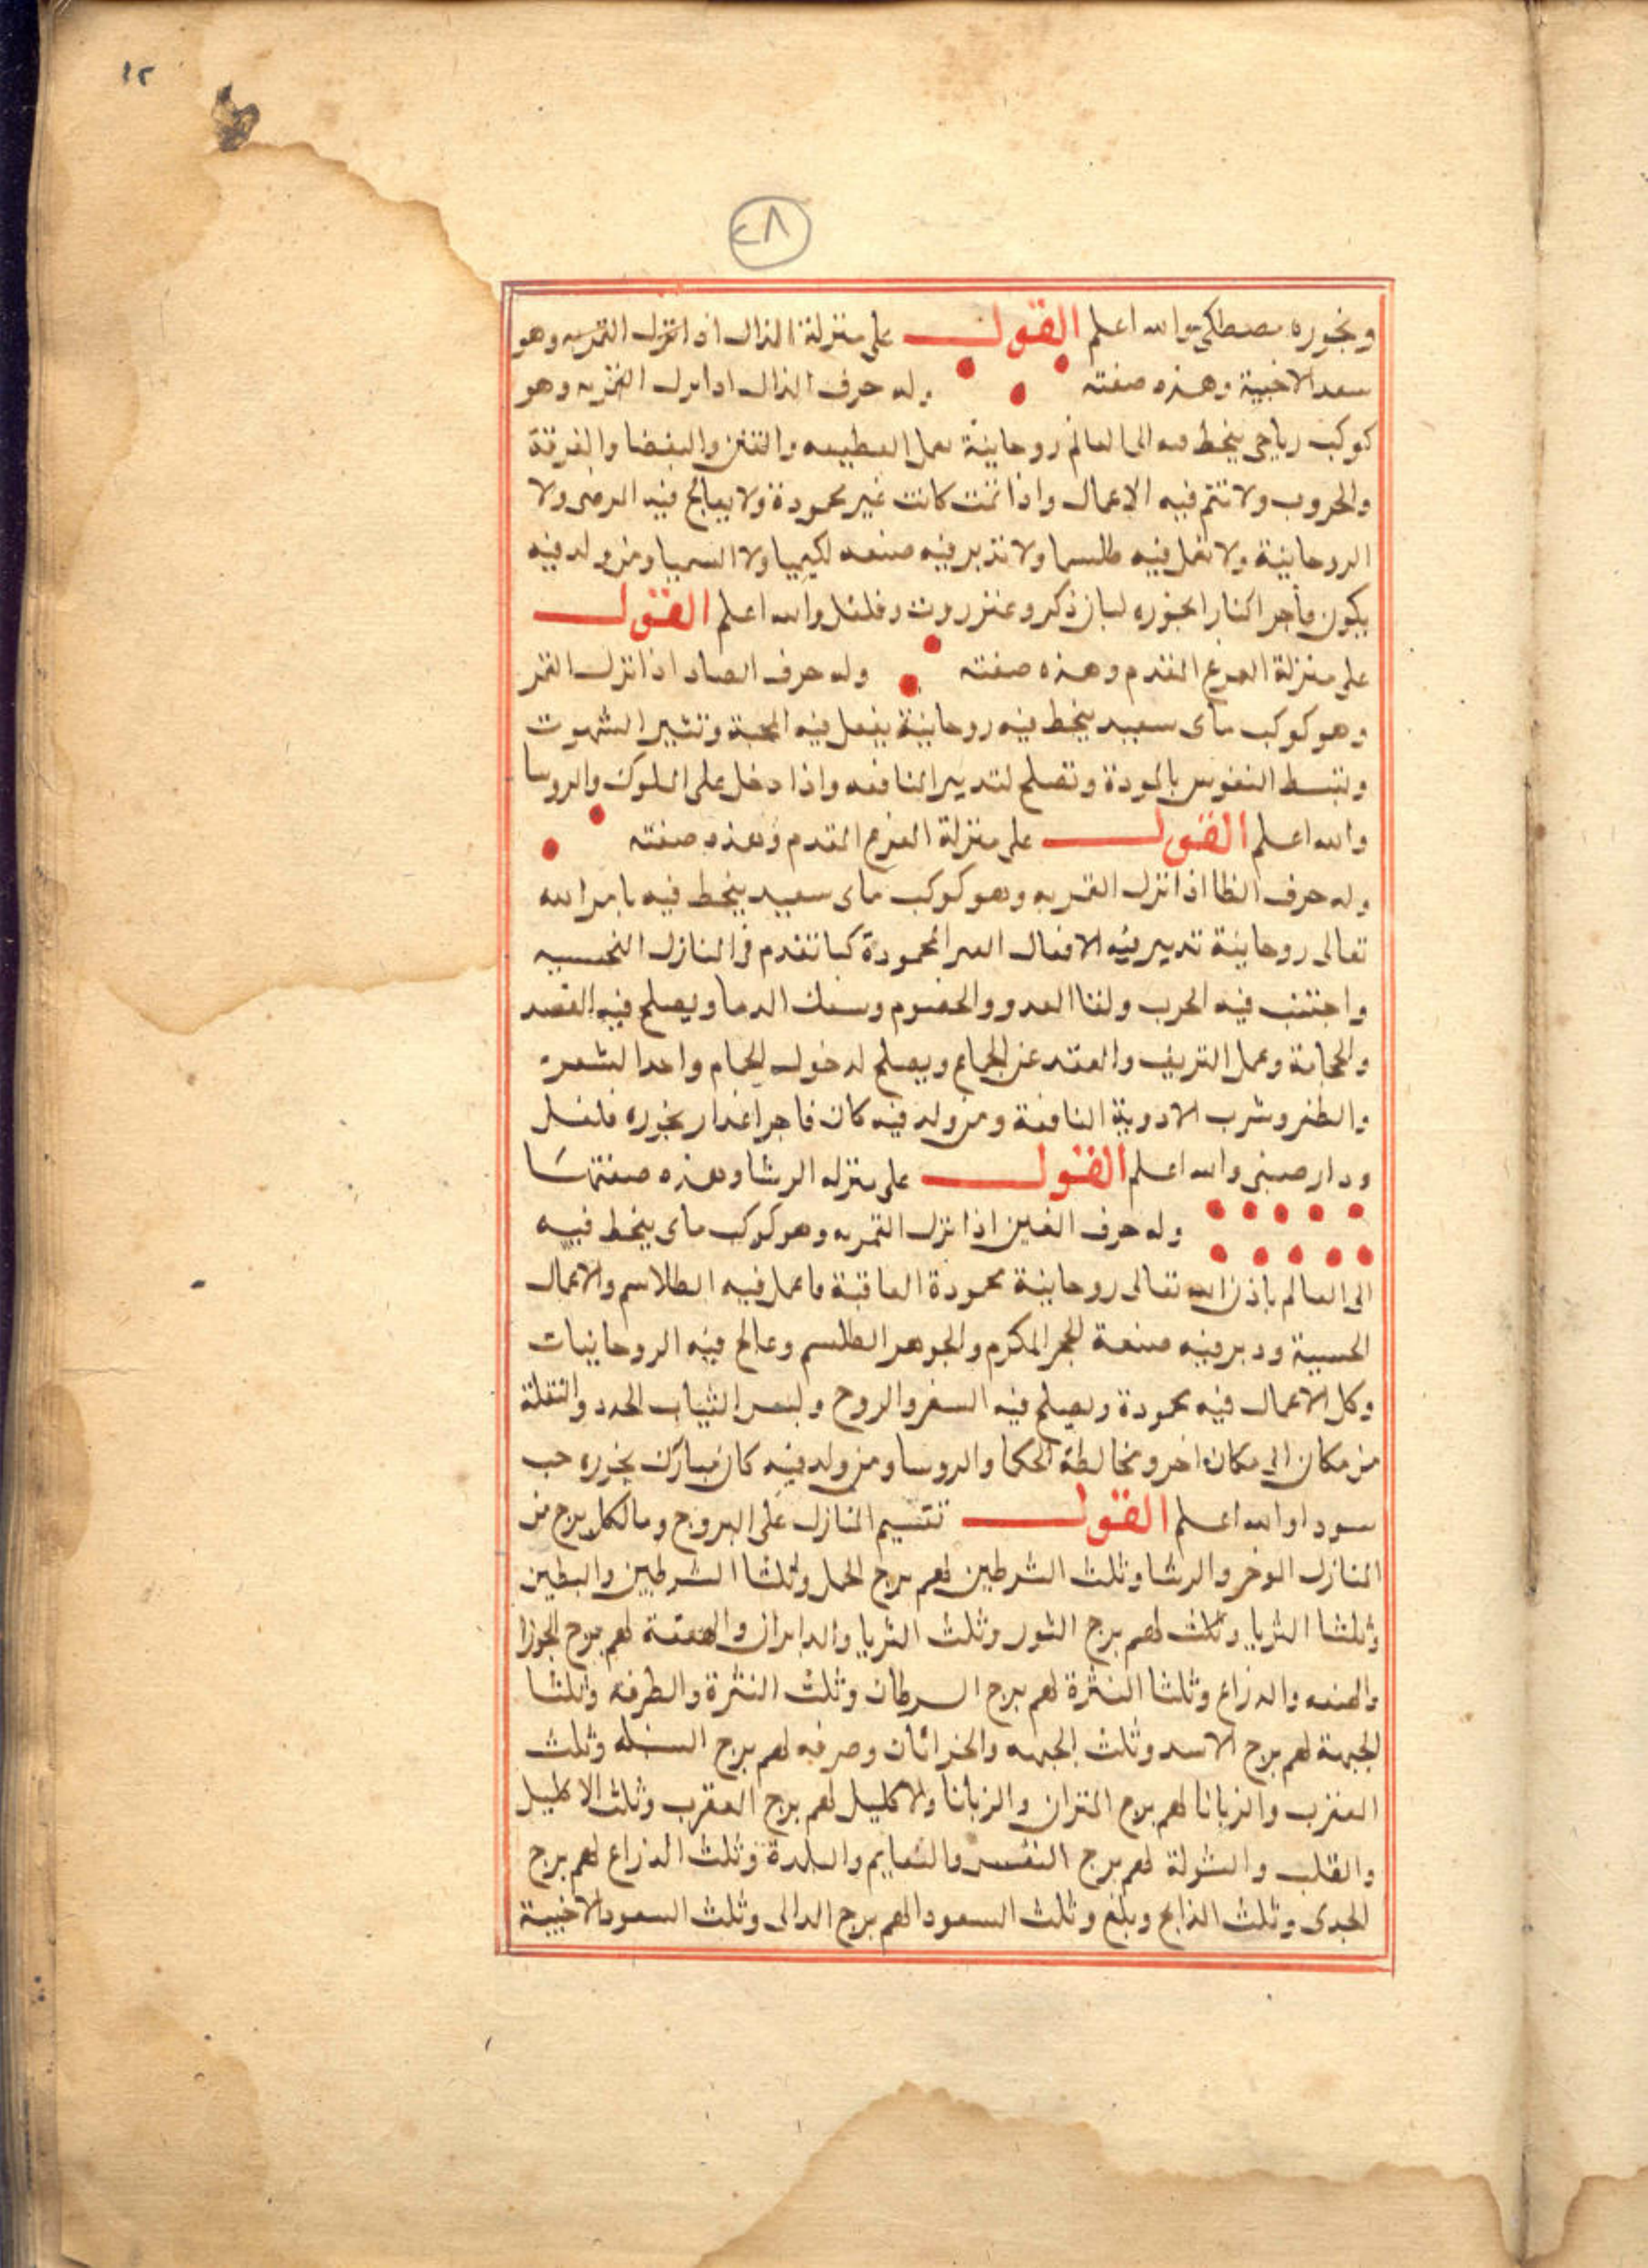 ١٢
٢٨
وبخوره مصطكى والله اعلم القول على منزلة الذال اذا نزل القمر به وهو
سعد الاخبية وهذه صفته وله حرف الذال اذا نزل القمر به وهو
كوكب رياحي ينحط فيه الى العالم روحانية تعمل القطيعه والفتن والبغضا والفرقة
والحروب ولا تتم فيه الاعمال واذا تمت كانت غير محمودة ولا يعالج فيه المرضى ولا
الروحانية ولا تعمل فيه طلسما ولا تدبر فيه صنعه لكيميا ولا السميا ومن ولد فيه
يكون فاجرا بخوره لبان ذكر وعنزروت وفلفل والله اعلم القول
على منزلة الفرع المقدم وهذه صفته وله حرف الضاد اذا نزل القمر
وهو كوكب ماى سعيد ينحط فيه روحانية يفعل فيه المحبة وتثير الشهوت
وتبسط النفوس بالمودة وتصلح لتدبير النافعه واذا دخل على الملوك والروسا
والله اعلم القول على منزلة الفرع المقدم وهذه صفته
وله حرف الظا اذا نزل القمر به وهو كوكب ماى سعيد ينحط فيه بامر الله
تعالى روحانية تدبير فيه الافعال الغير المحمودة كما تقدم في المنازل النحسيه
واجتنب فيه الحرب ولقا العدو والخصوم وسفك الدما ويصلح فيه الفصد
والحجامة وعمل النزيف والعقد عن الجماع ويصلح لدخول الحمام واخد الشعر
والظفر وشرب الادوية النافعة ومن ولد فيه كان فاجرا غدار بخوره فلفل
ودار صينى والله اعلم القول على منزله الرشا وهذه صفتها
وله حرف الغين اذا نزل القمر به وهو كوكب ماى ينحط فيه
الى العالم باذن الله تعالى روحانية محمودة العاقبة فاعمل فيه الطلاسم والاعمال
الحسبية ودبر فيه صنعة الحجر المكرم والجوهر الطلسم وعالج فيه الروحانيات
وكل الاعمال فيه محمودة ويصلح فيه السفر والزوج ولبس الثياب الجدد والنقلة
من مكان الى مكان اخر ومخالطة الحكما والروسا ومن ولد فيه كان مبارك بخوره حب
سودا والله اعلم القول تقسيم المنازل على البروج وما لكل برج من
المنازل الموخر والرشا وثلث الشرطين لهم برج الحمل وثلثا الشرطين والبطين
وثلثا الثريا وثلث لهم برج الثور وثلث الثريا والدابران والهقعة لهم برج الجوزا
والهنعه والدزاع وثلثا النثرة لهم برج السرطان وثلث النثرة والطرفه وثلثا
الجبهة لهم برج الاسد وثلث الجبهه والخراثان وصرفه لهم برج السنبله وثلث
العقرب والزبانا لهم برج المتزان والزبانا ولا كليل لهم برج العقرب وثلث الاكليل
والقلب والشولة لهم برج القوس والنعايم والبلدة وثلث الدزاع لهم برج
الجدى وثلث الذابح وبلغ وثلث السعود الهم برج الدالى وثلث السعود الاخبية